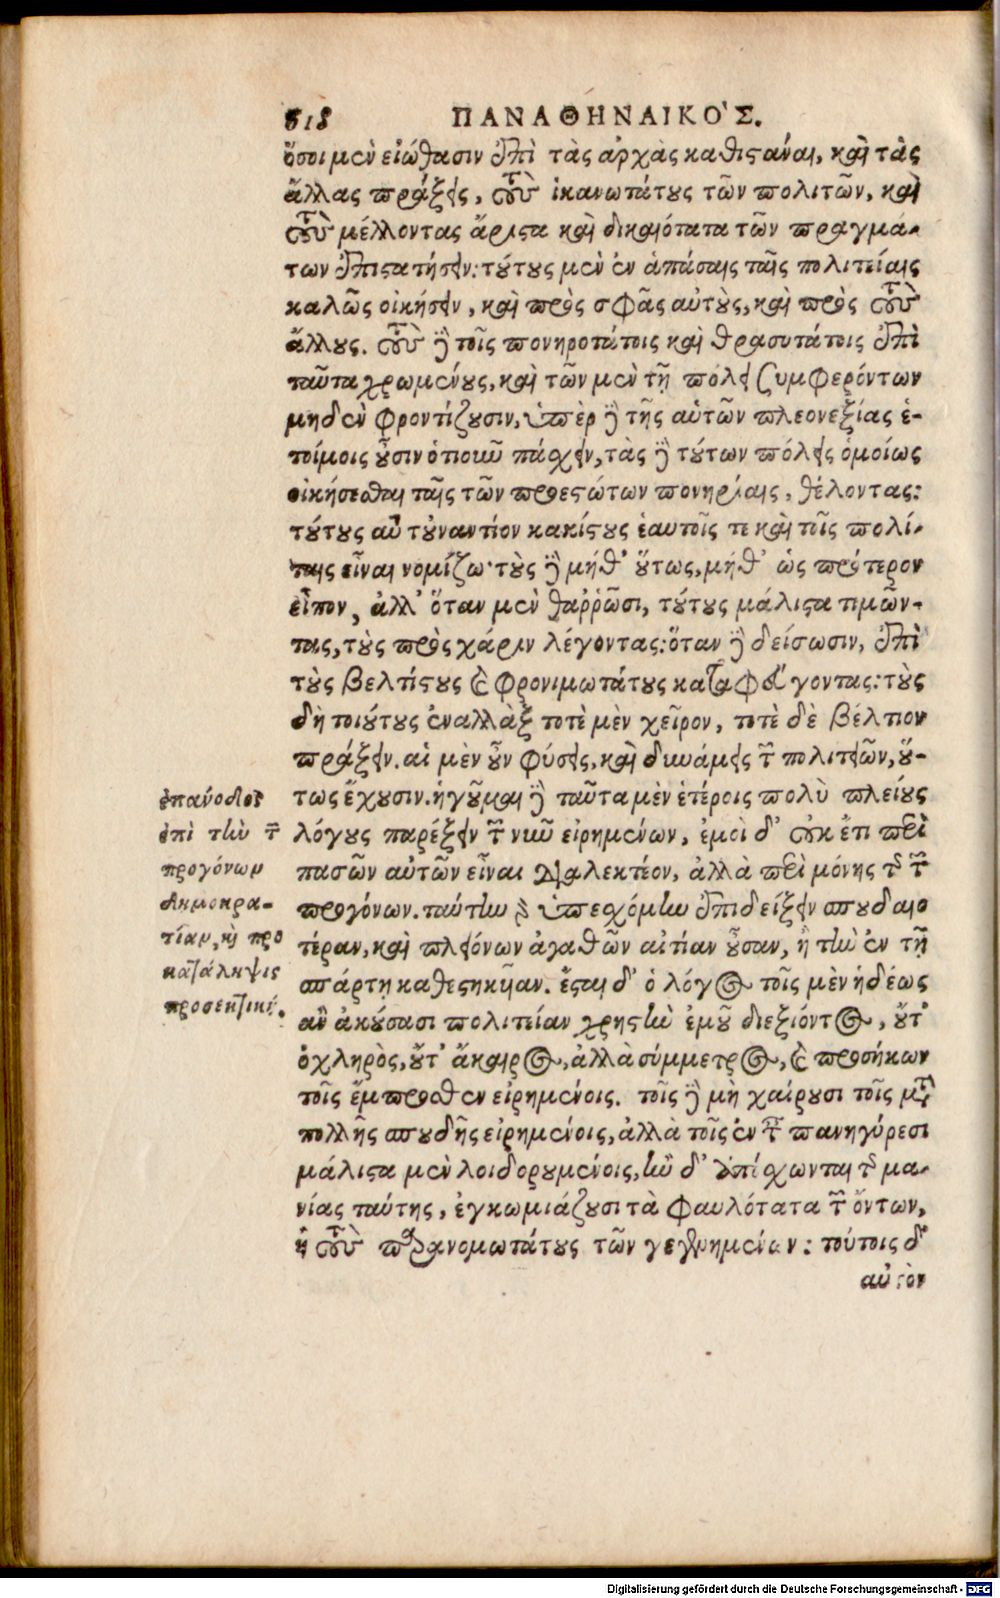 518 ΠΑΝΑΘΗΝΑΙΚΟ'Σ.
ὅσοι μὲν εἰώθασιν ἐπὶ τὰς ἀρχὰς καθιστάναι, καὶ τὰς
ἄλλας πράξεις, τοὺς ἱκανωτάτους τῶν πολιτῶν, καὶ
τοὺς μέλλοντας ἄριστα καὶ δικαιότατα τῶν πραγμά-
των ἐπιστατήσειν: τούτους μὲν ἐν ἁπάσαις ταῖς πολιτείαις
καλῶς οἰκήσειν, καὶ πρὸς σφᾶς αὐτοὺς, καὶ πρὸς τοὺς
ἄλλους. τοὺς δὲ τοῖς πονηροτάτοις καὶ θρασυτάτοις ἐπὶ
ταῦτα χρωμένους, καὶ τῶν μὲν τῇ πόλει συμφερόντων
μηδὲν φροντίζουσιν, ὑπὲρ δὲ τῆς αὑτῶν πλεονεξίας ἑ-
τοίμοις οὖσιν ὁτιοῦν πάσχειν, τὰς δὲ τούτων πόλεις ὁμοίως
οἰκήσεσθαι ταῖς τῶν προεστώτων πονηρίαις, θέλοντας:
τούτους αὖ τοὐναντίον κακίστους ἑαυτοῖς τε καὶ τοῖς πολί-
ταις εἶναι νομίζω· τοὺς δὲ μήθ' οὕτως, μήθ' ὡς πρότερον
εἶπον, ἀλλ' ὅταν μὲν θαῤῥῶσι, τούτους μάλιστα τιμῶν-
τας, τοὺς πρὸς χάριν λέγοντας: ὅταν δὲ δείσωσιν, ἐπὶ
τοὺς βελτίστους καὶ φρονιμωτάτους καταφεύγοντας: τοὺς
δὴ τοιούτους ἐναλλὰξ τοτὲ μὲν χεῖρον, τοτὲ δὲ βέλτιον
πράξειν. αἱ μὲν οὖν φύσεις, καὶ δυνάμεις τῶν πολιτειῶν, οὕ-
τως ἔχουσιν. ἡγοῦμαι δὲ ταῦτα μὲν ἑτέροις πολὺ πλείους
λόγους παρέξειν τῶν νῦν εἰρημένων, ἐμοὶ δ' οὐκ ἔτι περὶ
πασῶν αὐτῶν εἶναι διαλεκτέον, ἀλλὰ περὶ μόνης τῆς τῶν
προγόνων. ταύτην γὰρ ὑπεσχόμην ἐπιδείξειν σπουδαιο
τέραν, καὶ πλειόνων ἀγαθῶν αἰτίαν οὖσαν, ἢ τὴν ἐν τῇ
σπάρτῃ καθεστηκυῖαν. ἔσται δ' ὁ λόγος τοῖς μὲν ἡδέως
ἂν ἀκούσασι πολιτείαν χρηστὴν ἐμοῦ διεξιόντος, οὔτ'
ὀχληρὸς, οὔτ' ἄκαιρος, ἀλλὰ σύμμετρος, καὶ προσήκων
τοῖς ἔμπροσθεν εἰρημένοις. τοῖς δὲ μὴ χαίρουσι τοῖς μετὰ
πολλῆς σπουδῆς εἰρημένοις, ἀλλὰ τοῖς ἐν ταῖς πανηγύρεσι
μάλιστα μὲν λοιδορουμένοις, ἢν δ' ἐπίσχωνται τῆς μα-
νίας ταύτης, ἐγκωμιάζουσι τὰ φαυλότατα τῶν ὄντων,
ἢ τοὺς παρανομωτάτους τῶν γεγενημένων: τούτοις δ'
αὐτὸν
ἐπανόδος
ἐπὶ τὴν τῶν
προγόνων
δημοκρα-
τίαν, καὶ προ
κατάληψις
προσεκτική.
Digitalisierung gefördert durch die Deutsche Forschungsgemeinschaft - DFG